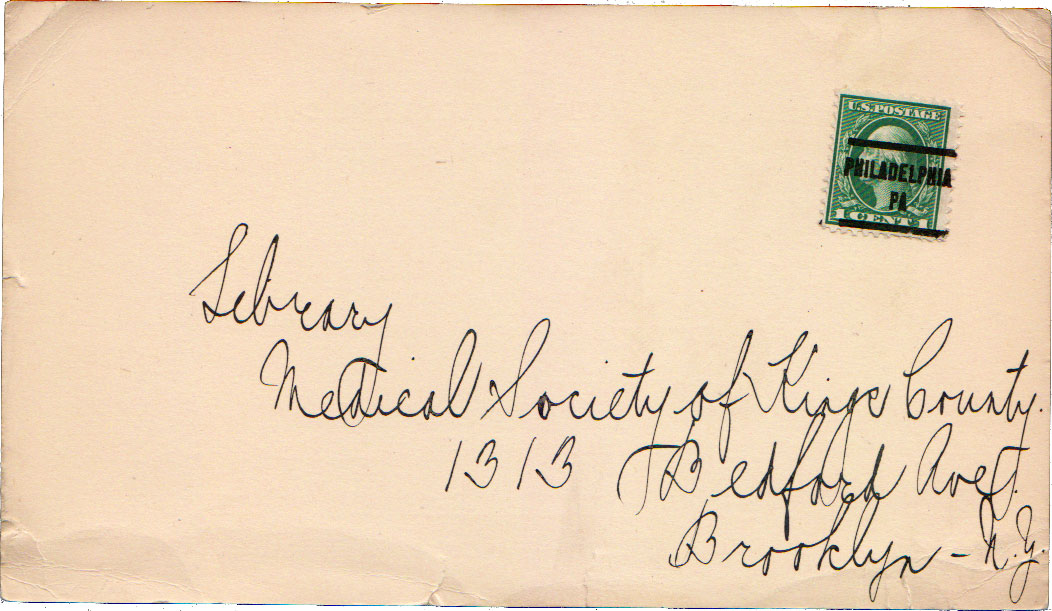 U.S.POSTAGE
PHILADELPHIA
PA
1 CENT 1
Library
Medical Society of Kings County.
1313 Bedford Ave
Brooklyn - N.Y.